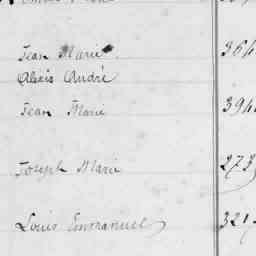 Jean Marie 364
Alexis André
Jean Marie 394
Joseph Marie 273
Louis Emmanuel 321